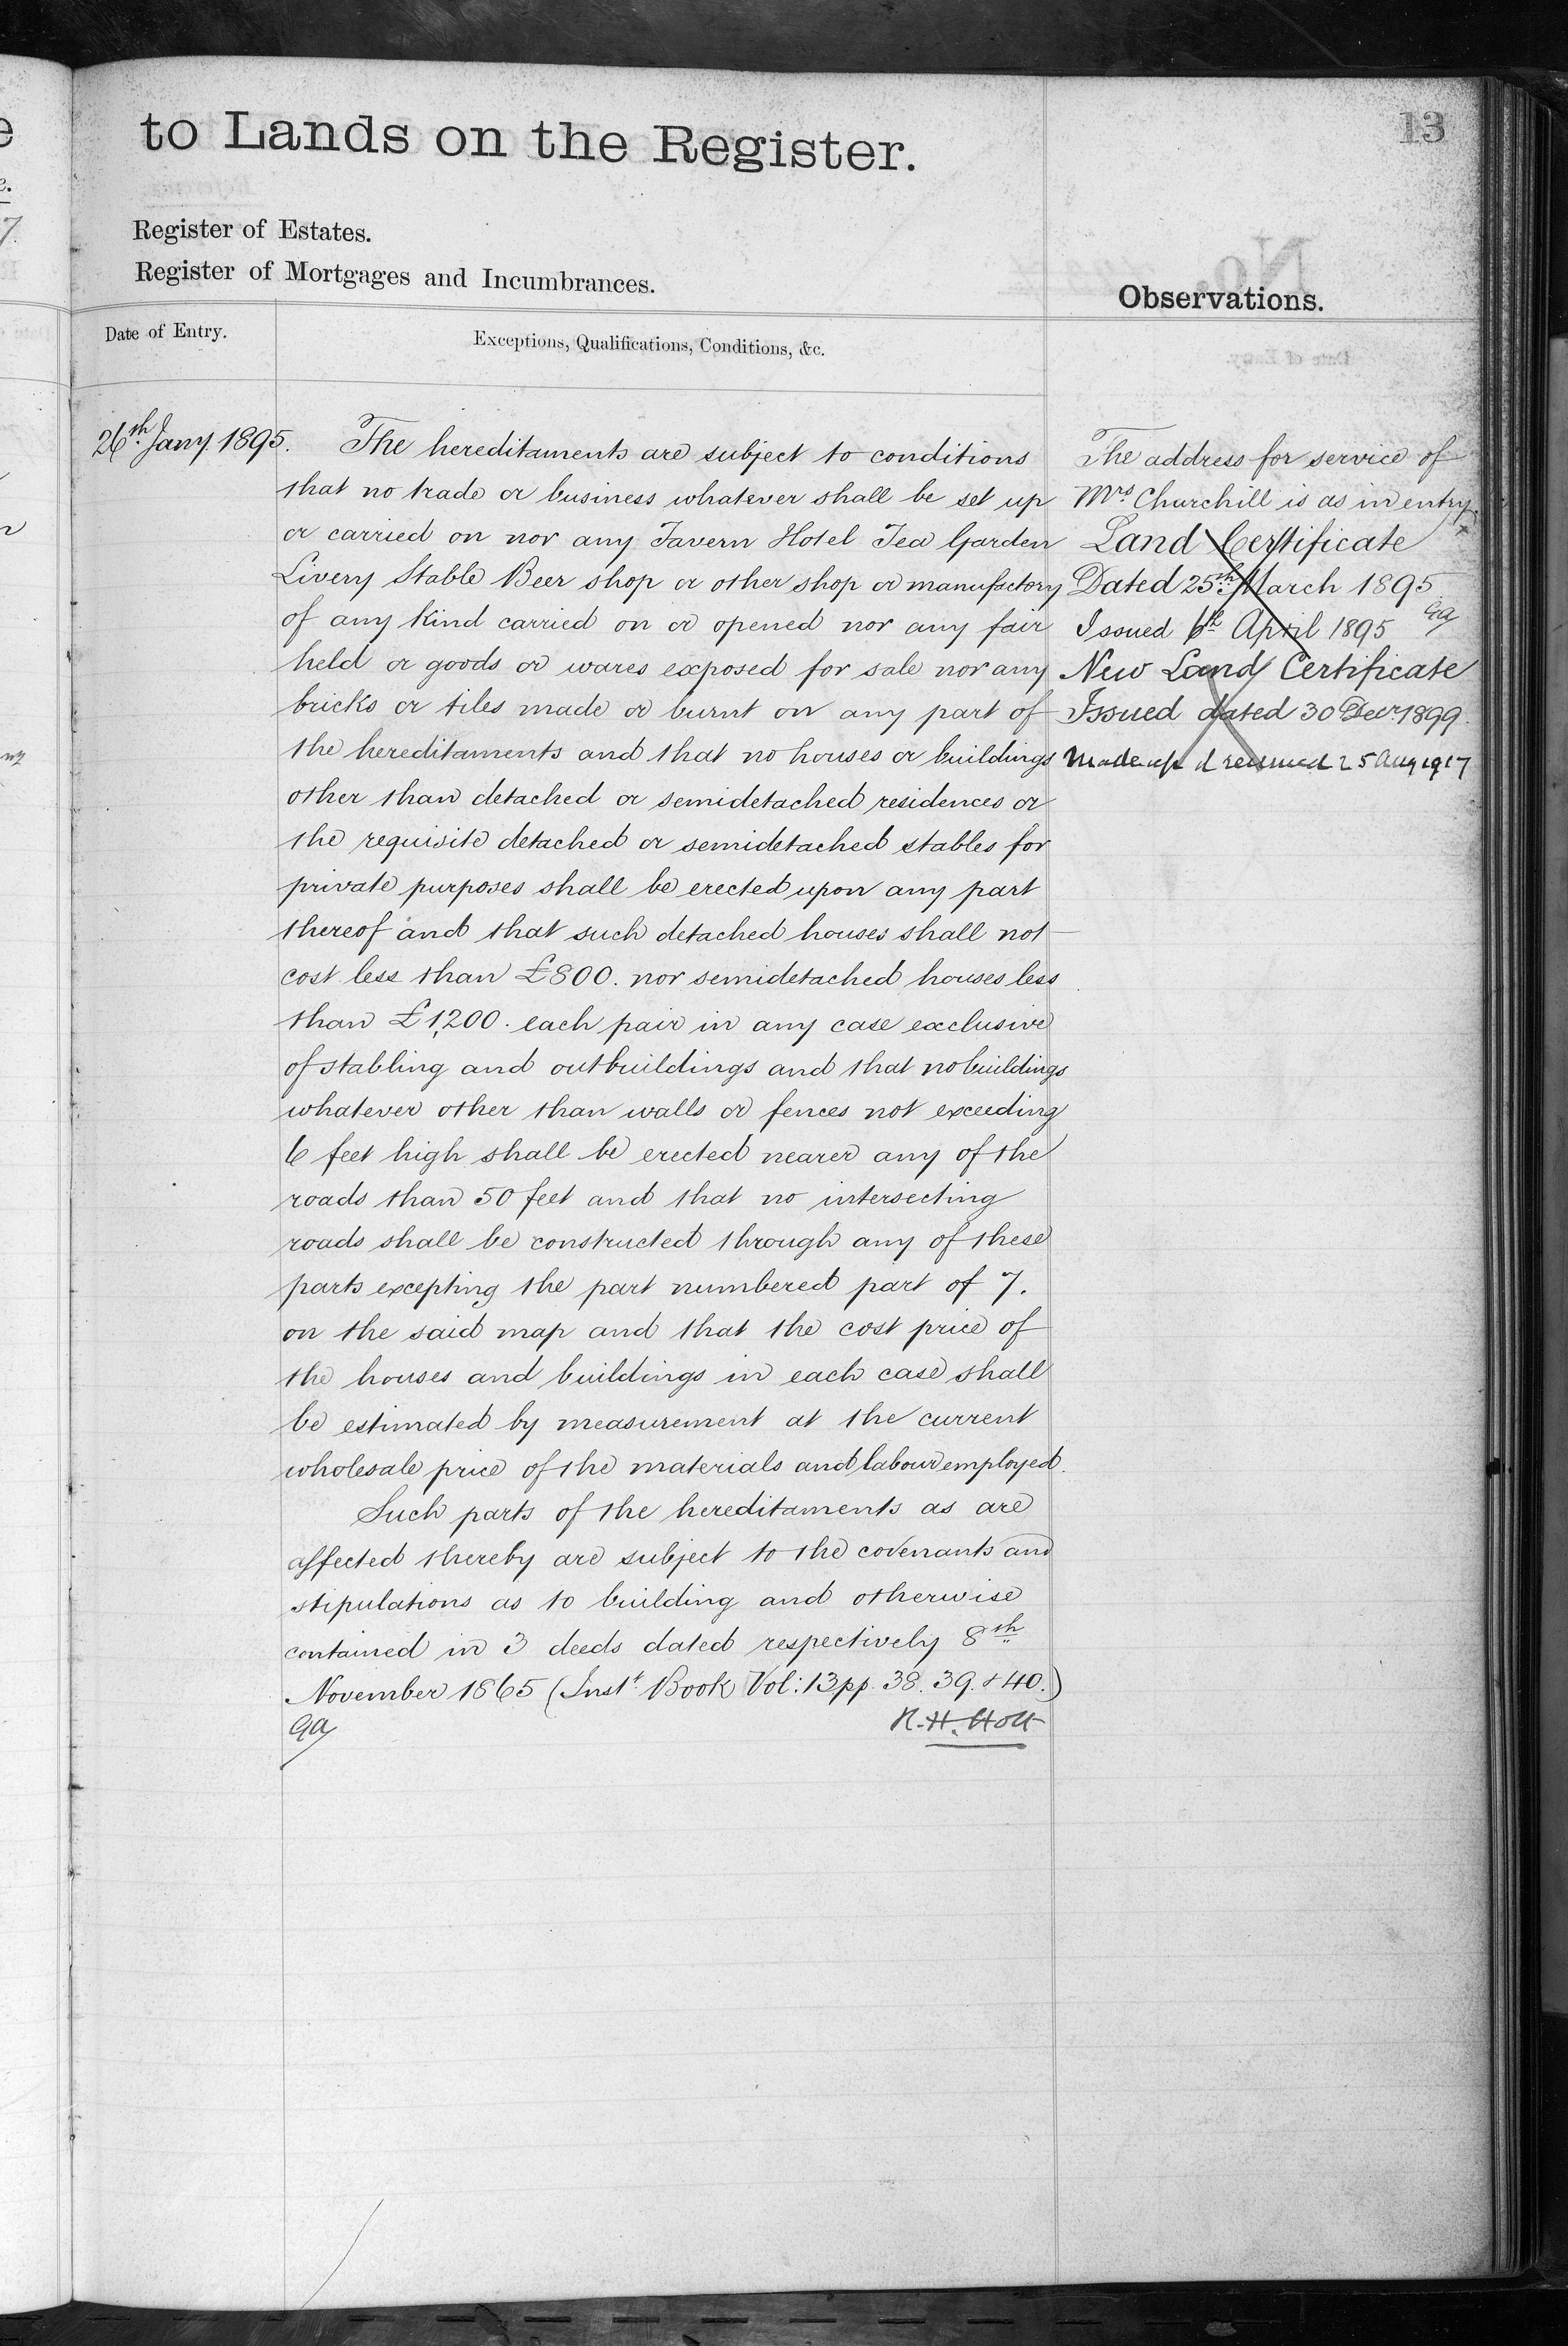 to Lands on the Register.
13
Register of Estates.
Register of Mortgages and Incumbrances.
Observations.
Date of Entry.
Exceptions, Qualifications, Conditions, &c.
26th Jany. 1895.
The hereditaments are subject to conditions
that no trade or business whatever shall be set up
or carried on nor any Tavern Hotel Tea Garden
Livery Stable Beer shop or other shop or manufactory
of any kind carried on or opened nor any fair
held or goods or wares exposed for sale nor any
bricks or tiles made or burnt on any part of
the hereditaments and that no houses or buildings
other than detached or semidetached residences or
the requisite detached or semidetached stables for
private purposes shall be erected upon any part
thereof and that such detached houses shall not
cost less than £800. nor semidetached houses less
than £1,200. each pair in any case exclusive
of stabling and outbuildings and that no buildings
whatever other than walls or fences not exceeding
6 feet high shall be erected nearer any of the
roads than 50 feet and that no intersecting
roads shall be constructed through any of these
parts excepting the part numbered part of 7.
on the said map and that the cost price of
the houses and buildings in each case shall
be estimated by measurement at the current
wholesale price of the materials and labour employed.
Such parts of the hereditaments as are
affected thereby are subject to the covenants and
stipulations as to building and otherwise
contained in 3 deeds dated respectively 8th
November 1865 (Inst. Book Vol: 13 pp. 38. 39. & 40.)
R. H. Holt
The address for service of
Mrs Churchill is as in entry
Land Certificate
Dated 25th March 1895
Issued 6th April 1895
New Land Certificate
Issued dated 30 Decr. 1899.
Made up & reissued 25 Aug 1917